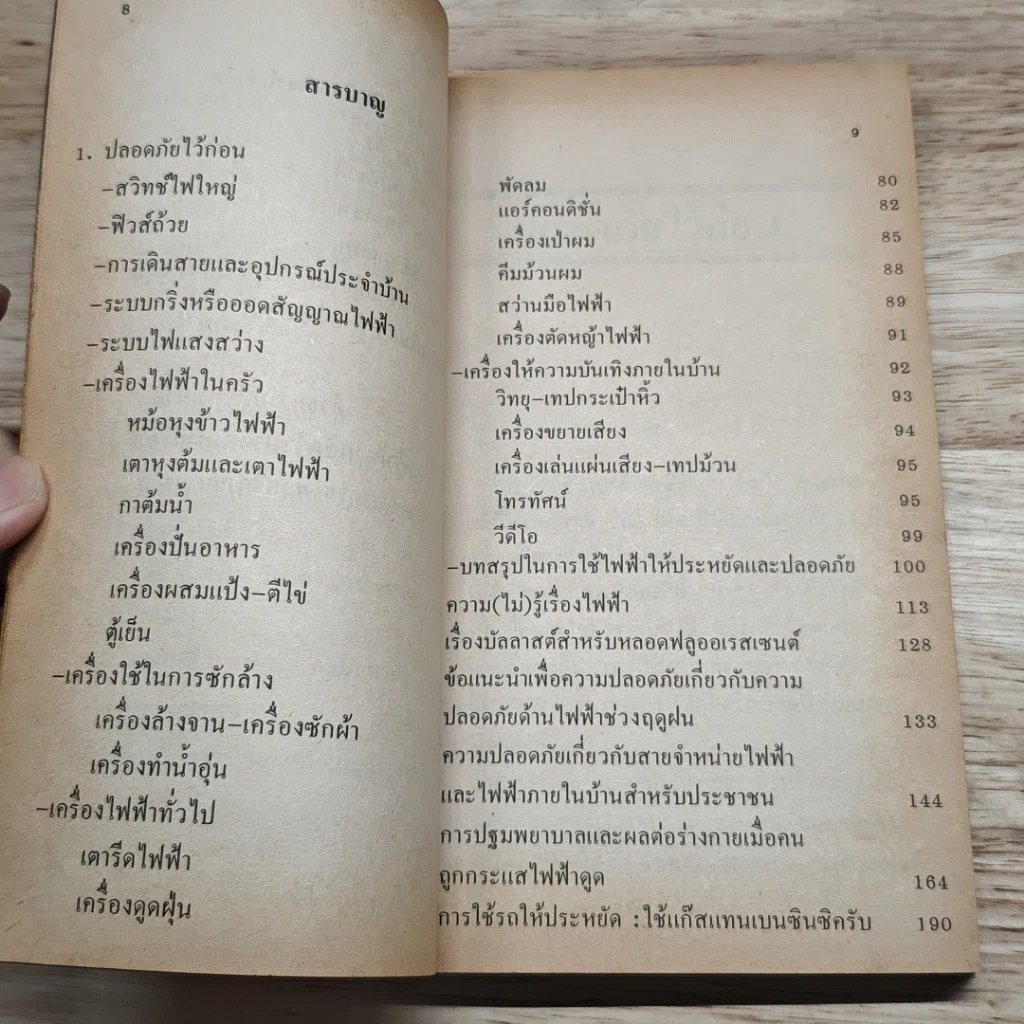 8
สารบาญ
1. ปลอดภัยไว้ก่อน
–สวิทช์ไฟใหญ่
–ฟิวส์ถ้วย
–การเดินสายและอุปกรณ์ประจำบ้าน
–ระบบกริ่งหรือออดสัญญาณไฟฟ้า
–ระบบไฟแสงสว่าง
–เครื่องไฟฟ้าในครัว
หม้อหุงข้าวไฟฟ้า
เตาหุงต้มและเตาไฟฟ้า
กาต้มน้ำ
เครื่องปั่นอาหาร
เครื่องผสมแป้ง–ตีไข่
ตู้เย็น
–เครื่องใช้ในการซักล้าง
เครื่องล้างจาน–เครื่องซักผ้า
เครื่องทำน้ำอุ่น
–เครื่องไฟฟ้าทั่วไป
เตารีดไฟฟ้า
เครื่องดูดฝุ่น
9
พัดลม 80
แอร์คอนดิชั่น 82
เครื่องเป่าผม 85
คีมม้วนผม 88
สว่านมือไฟฟ้า 89
เครื่องตัดหญ้าไฟฟ้า 91
–เครื่องให้ความบันเทิงภายในบ้าน 92
วิทยุ–เทปกระเป๋าหิ้ว 93
เครื่องขยายเสียง 94
เครื่องเล่นแผ่นเสียง–เทปม้วน 95
โทรทัศน์ 95
วีดีโอ 99
–บทสรุปในการใช้ไฟฟ้าให้ประหยัดและปลอดภัย 100
ความ(ไม่)รู้เรื่องไฟฟ้า 113
เรื่องบัลลาสต์สำหรับหลอดฟลูออเรสเซนต์ 128
ข้อแนะนำเพื่อความปลอดภัยเกี่ยวกับความ
ปลอดภัยด้านไฟฟ้าช่วงฤดูฝน 133
ความปลอดภัยเกี่ยวกับสายจำหน่ายไฟฟ้า
และไฟฟ้าภายในบ้านสำหรับประชาชน 144
การปฐมพยาบาลและผลต่อร่างกายเมื่อคน
ถูกกระแสไฟฟ้าดูด 164
การใช้รถให้ประหยัด : ใช้แก๊สแทนเบนซินซิครับ 190